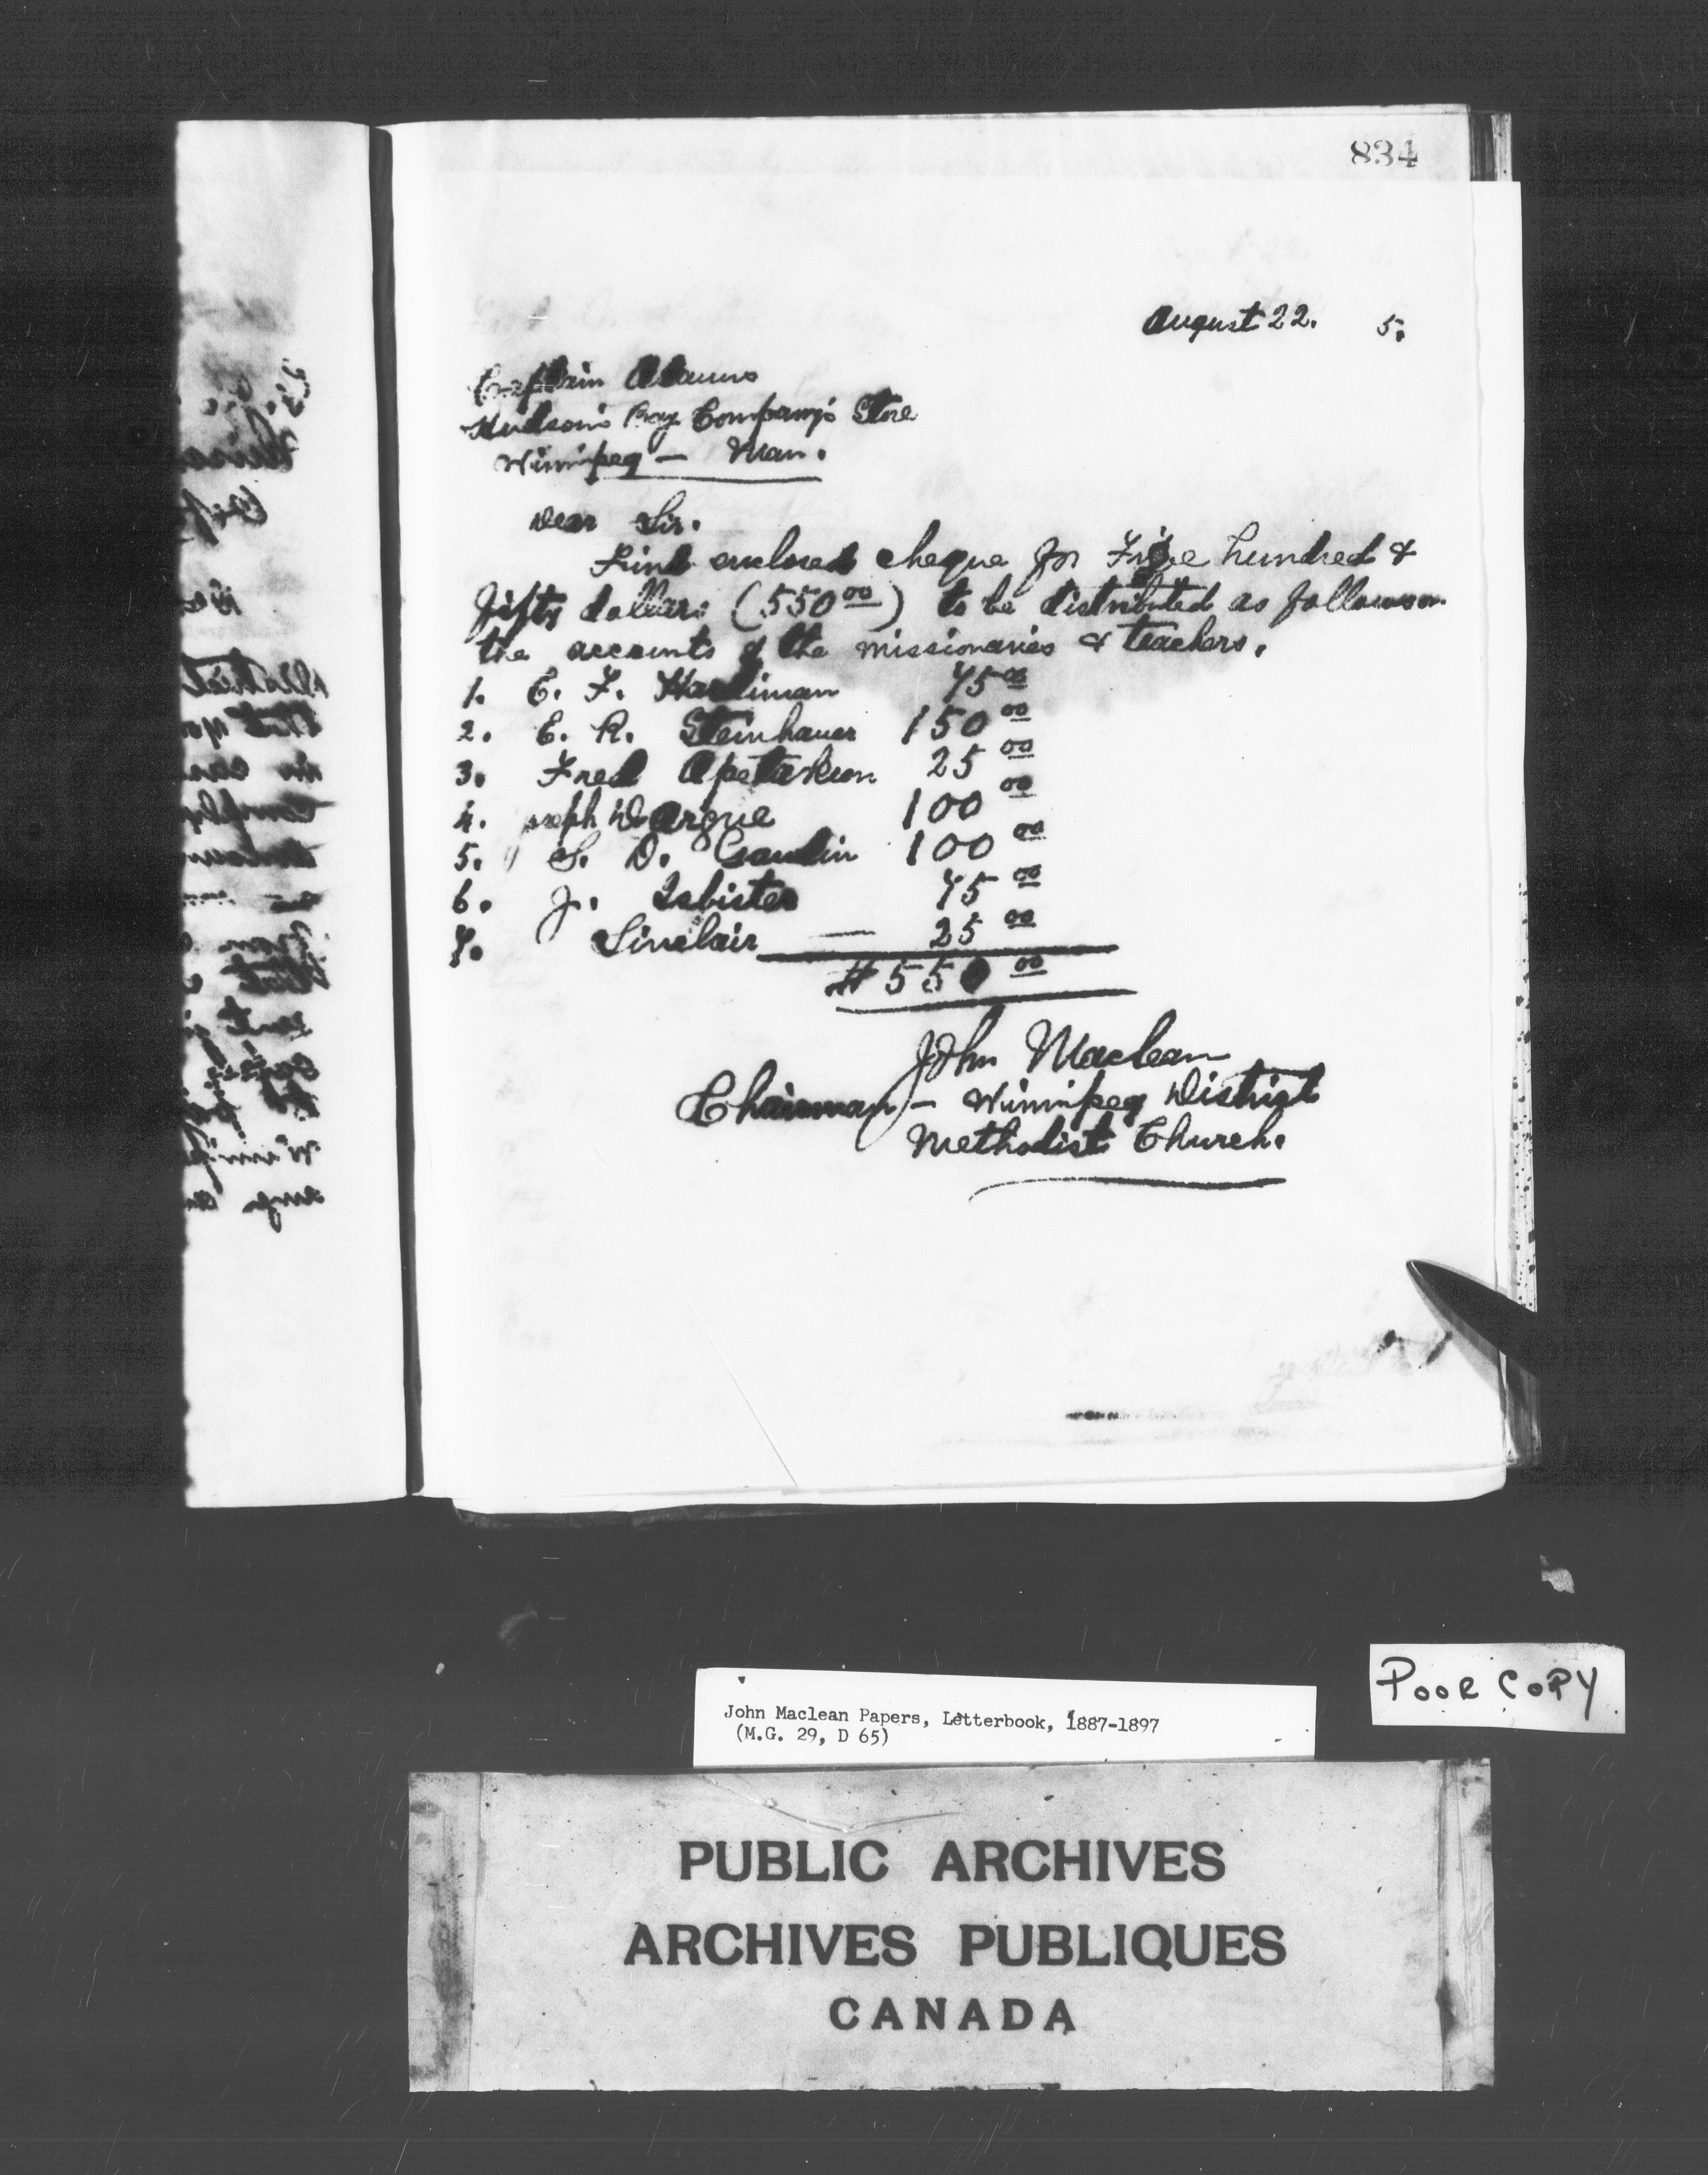 834
August 22. 5.
Captain Adams
Hudson's Bay Company's Store
Winnipeg — Man.
Dear Sir.
Find enclosed cheque for Five hundred &
fifty dollars (550 00) to be distributed as follows on
the accounts of the missionaries & teachers.
1. E. F. Hardiman 75 00
2. E. R. Steinhauer 150 00
3. Fred Apetakun 25 00
4. Joseph Dargue 100 00
5. " S. D. Gaudin 100 00
6. J. Isbister 75 00
7. Sinclair — 25 00
$ 550 00
John Maclean
Chairman — Winnipeg District
Methodist Church.
POOR COPY
John Maclean Papers, Letterbook, 1887-1897
(M.G. 29, D 65)
PUBLIC ARCHIVES
ARCHIVES PUBLIQUES
CANADA